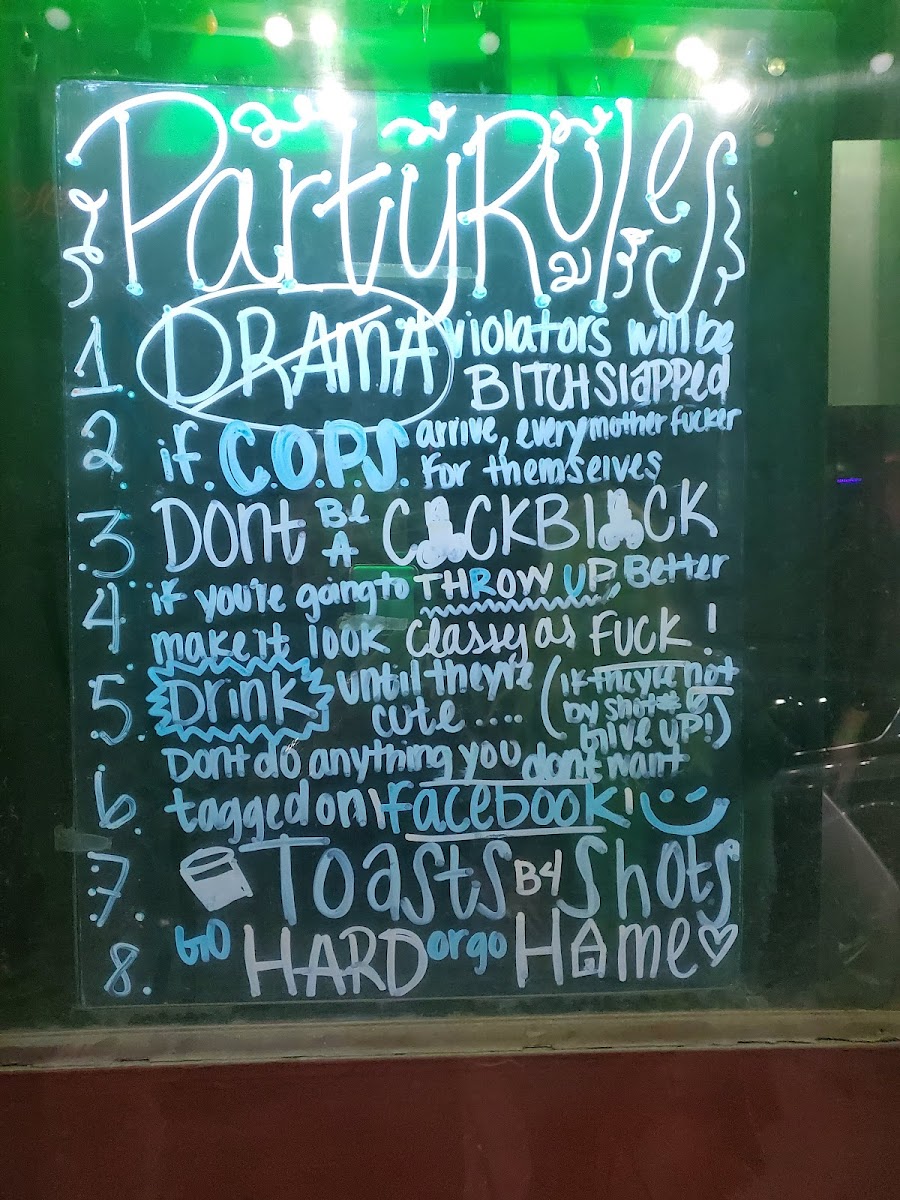 Party Rules
1. DRAMA violators will be
BITCHSlapped
2 if C.O.P.S. arrive, every mother fucker
for themselves
3 Dont BE A COCKBLOCK
4 if you're going to THROW UP, Better
make it look Classy as FUCK!
5. Drink until they're
cute.... (if they're not
by shot# 6
Give UP!)
6. Dont do anything you dont want
tagged on facebook!
7. Toasts B4 Shots
8. GO HARD or go Home